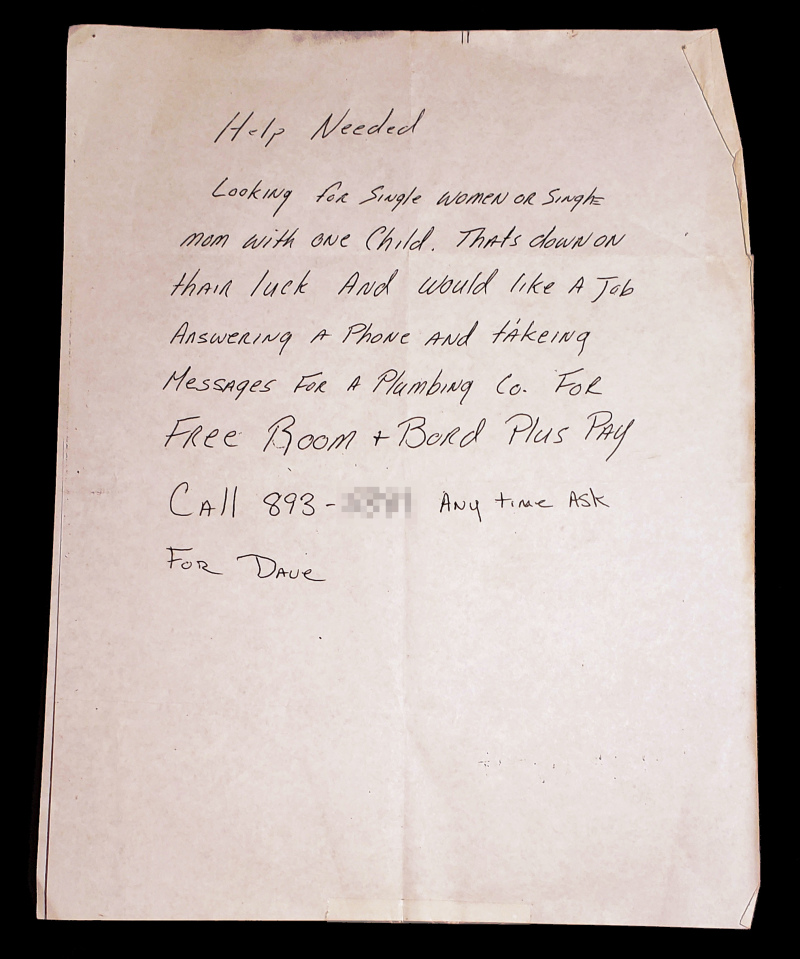 Help Needed
Looking for Single women or Single
mom with one Child. Thats down on
thair luck And would like A Job
Answering A Phone and tákeing
Messages For A Plumbing Co. For
Free Room + Bord Plus Pay
Call 893- Any time Ask
For Dave